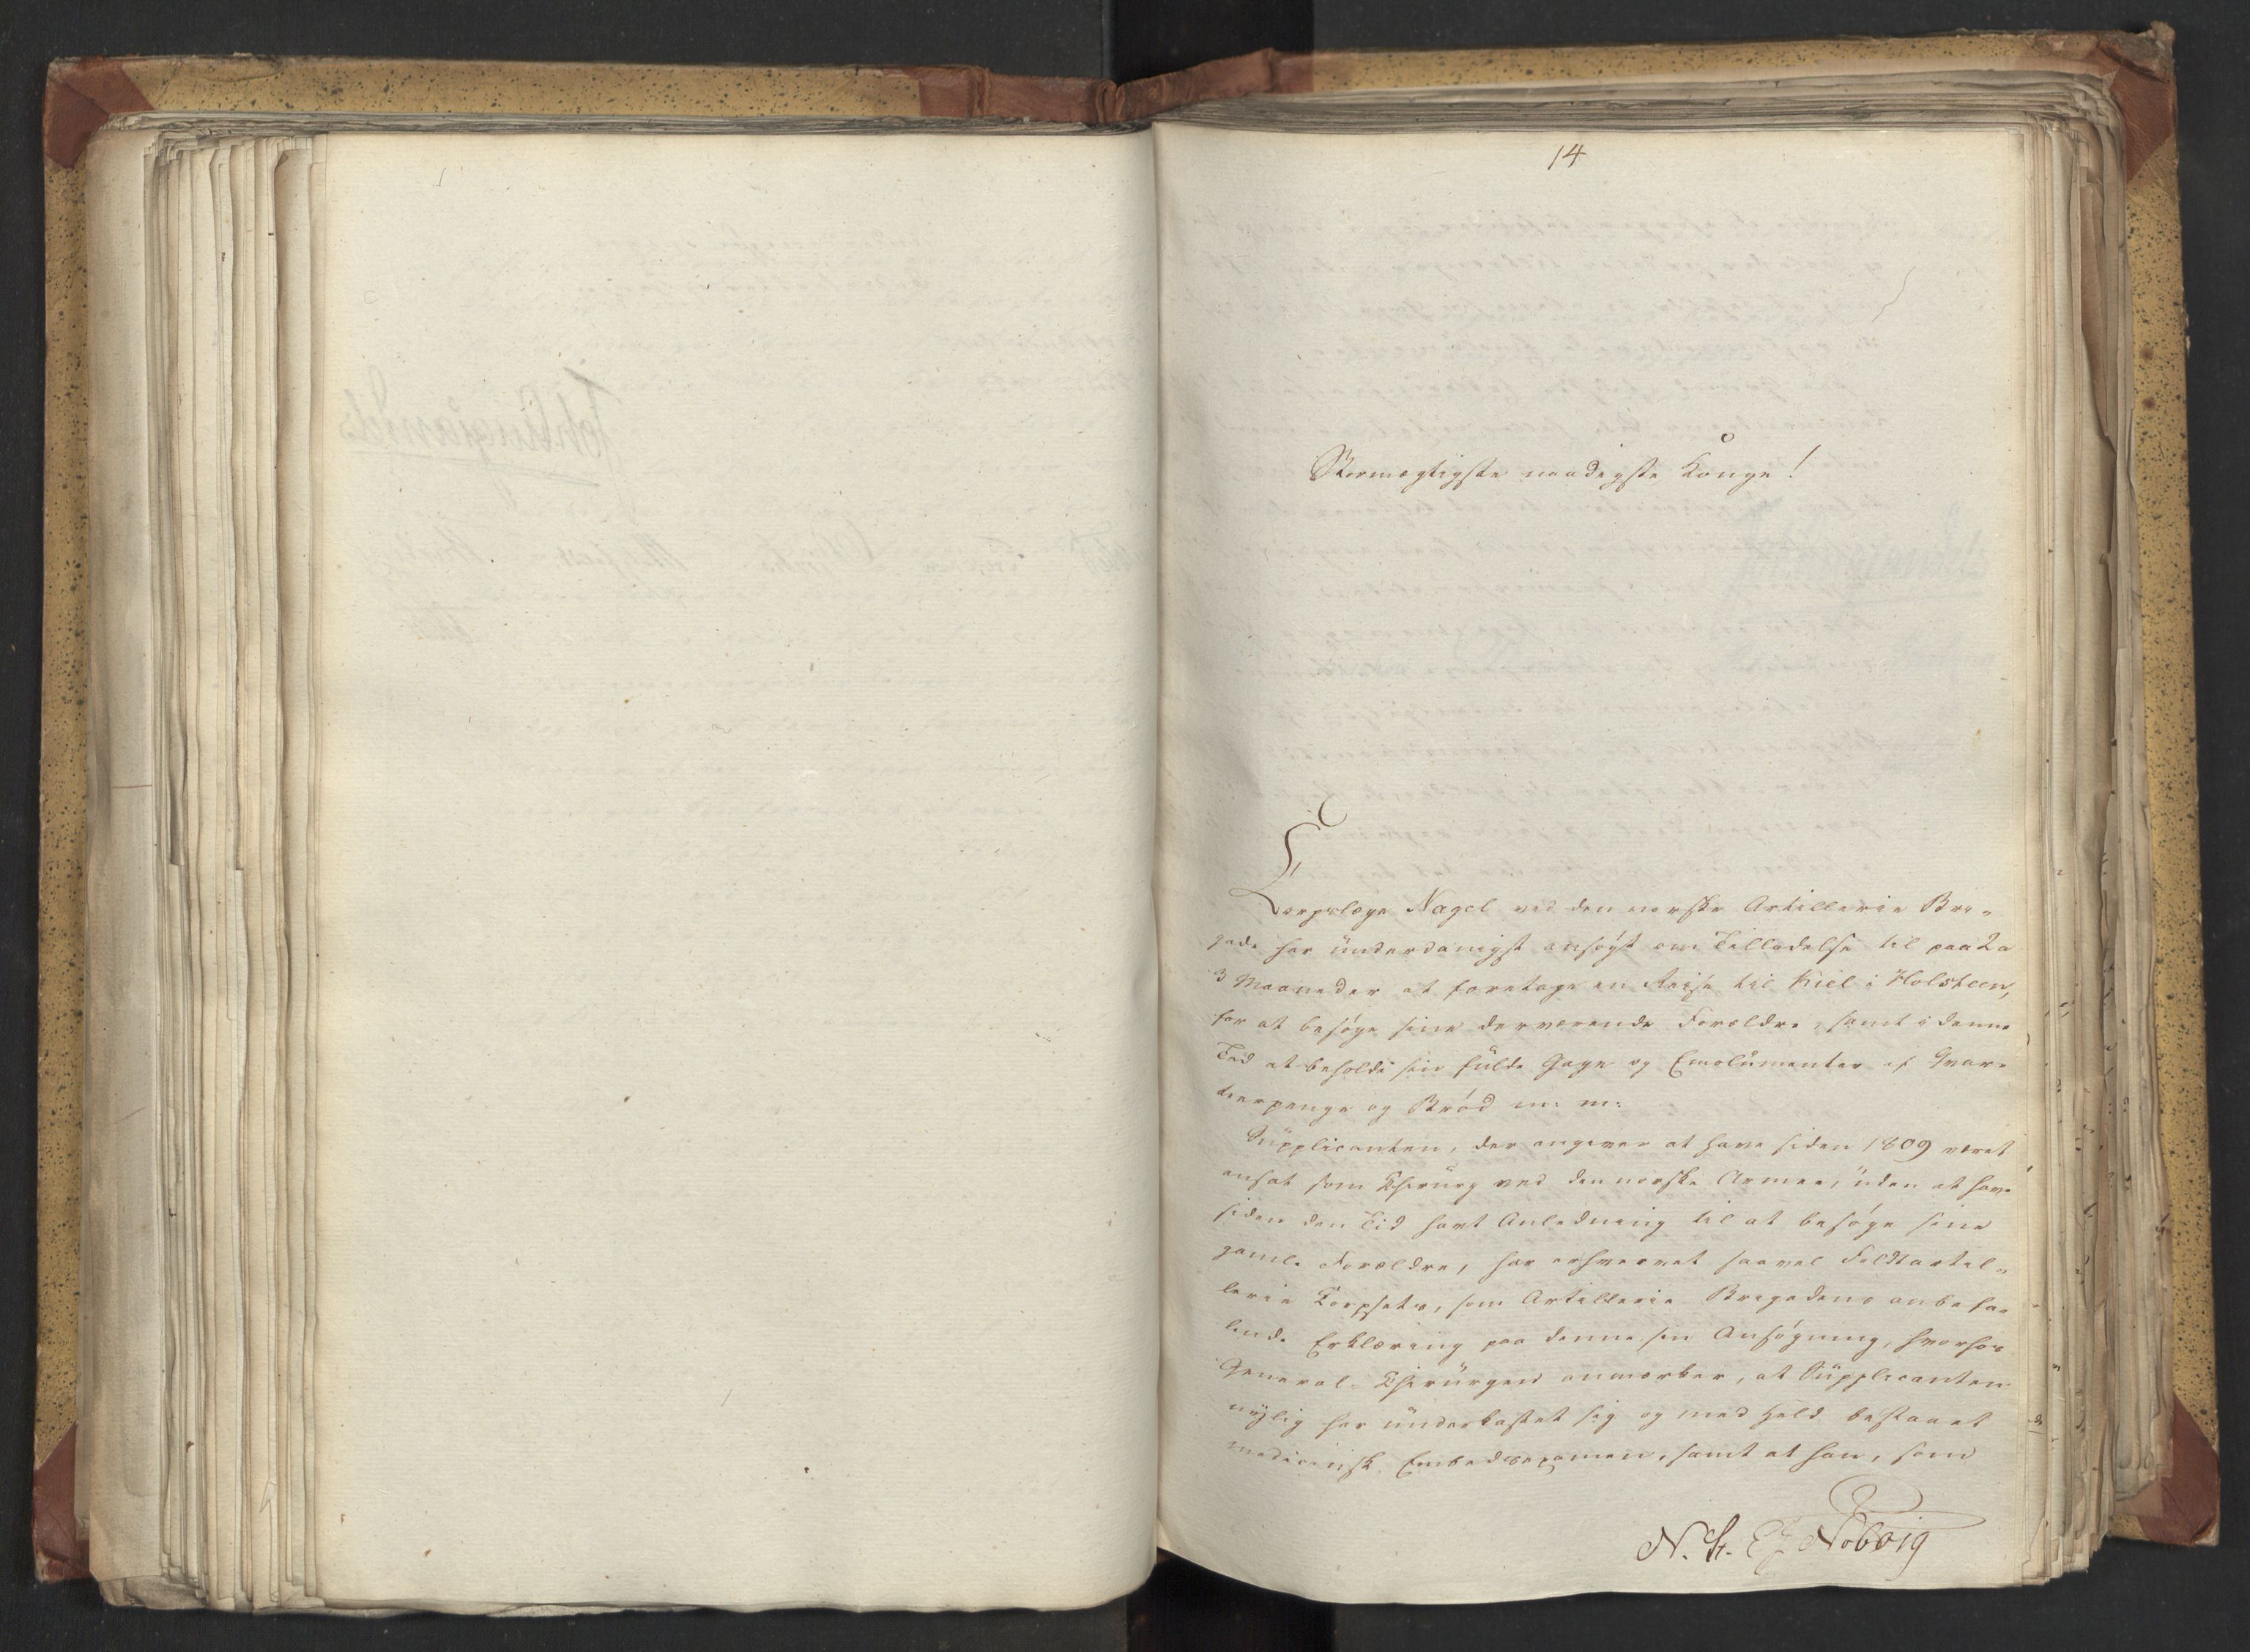 14
Stormægtigste naadigste Konge!
Corpslæge Nagel ved den norske Artillerie Bri-
gade har underdanigst ansøgt om Tilladelse til paa 2 a
3 Maaneder at foretage en Reise til Kiel i Holsteen,
for at besøge sine derværende Forældre, samt i denne
Tid at beholde sin fulde Gage og Emolumenter af Qvar-
teerpenge og Brød m: m:
Supplicanten, der angiver at have siden 1809 været
ansat som Chirurg ved den norske Armee, uden at have
siden den Tid havt Anledning til at besøge sine
gamle Forældre, har erhvervet saavel Feldtartil-
lerie Corpsets, som Artillerie Brigadens anbefa-
lende Erklæring paa denne sin Ansøgning, hvorhos
General-Chirurgen anmærker, at Supplicanten
nylig har underkastet sig og med Held bestaaet
medicinsk Embedsexamen, samt at han, som
N. St. E